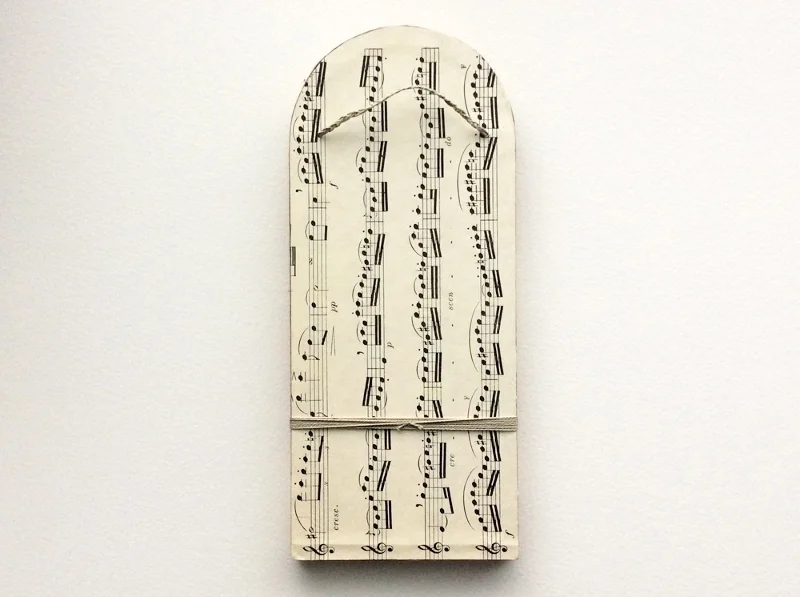 cresc. pp f
p
cre - - - scen - - - - do
f